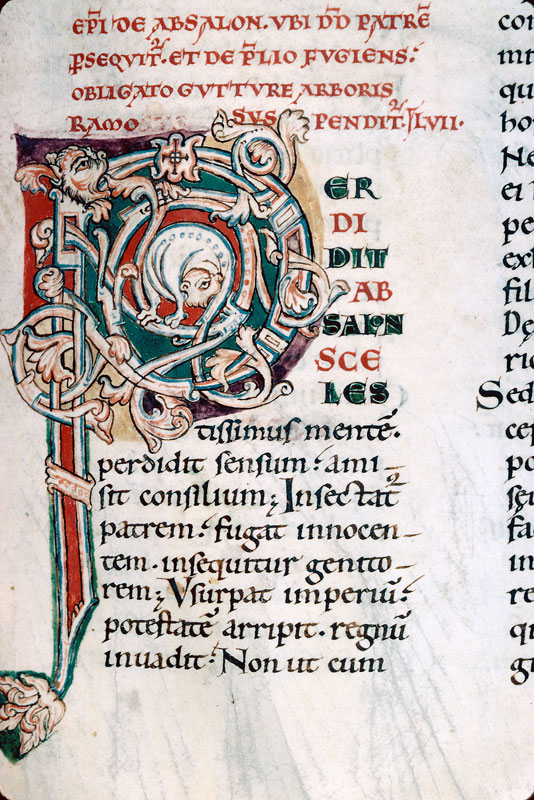 EP̅I DE ABSALON. VBI D̅D PATRE̅
P̲SEQVIT᷑. ET DE P̅LIO FVGIENS:
OBLIGATO GVTTVRE ARBORIS
RAMO SVSPENDIT᷑. LVII.
PER
DI
DIT
AB
SALON
SCE
LES
tissimus mente̅.
perdidit sensum: ami-
sit consilium; Insectat᷑
patrem: fugat innocen-
tem. insequitur genito-
rem; Vsurpat imperiu̅:
potestate̅ arripit. regnu̅
inuadit: Non ut cum
con
int
qu
ho
Ne
ei
pe
ext
fil
Dę
ric
Sed
cep
po
sęu
fa
in
re
qu
gu